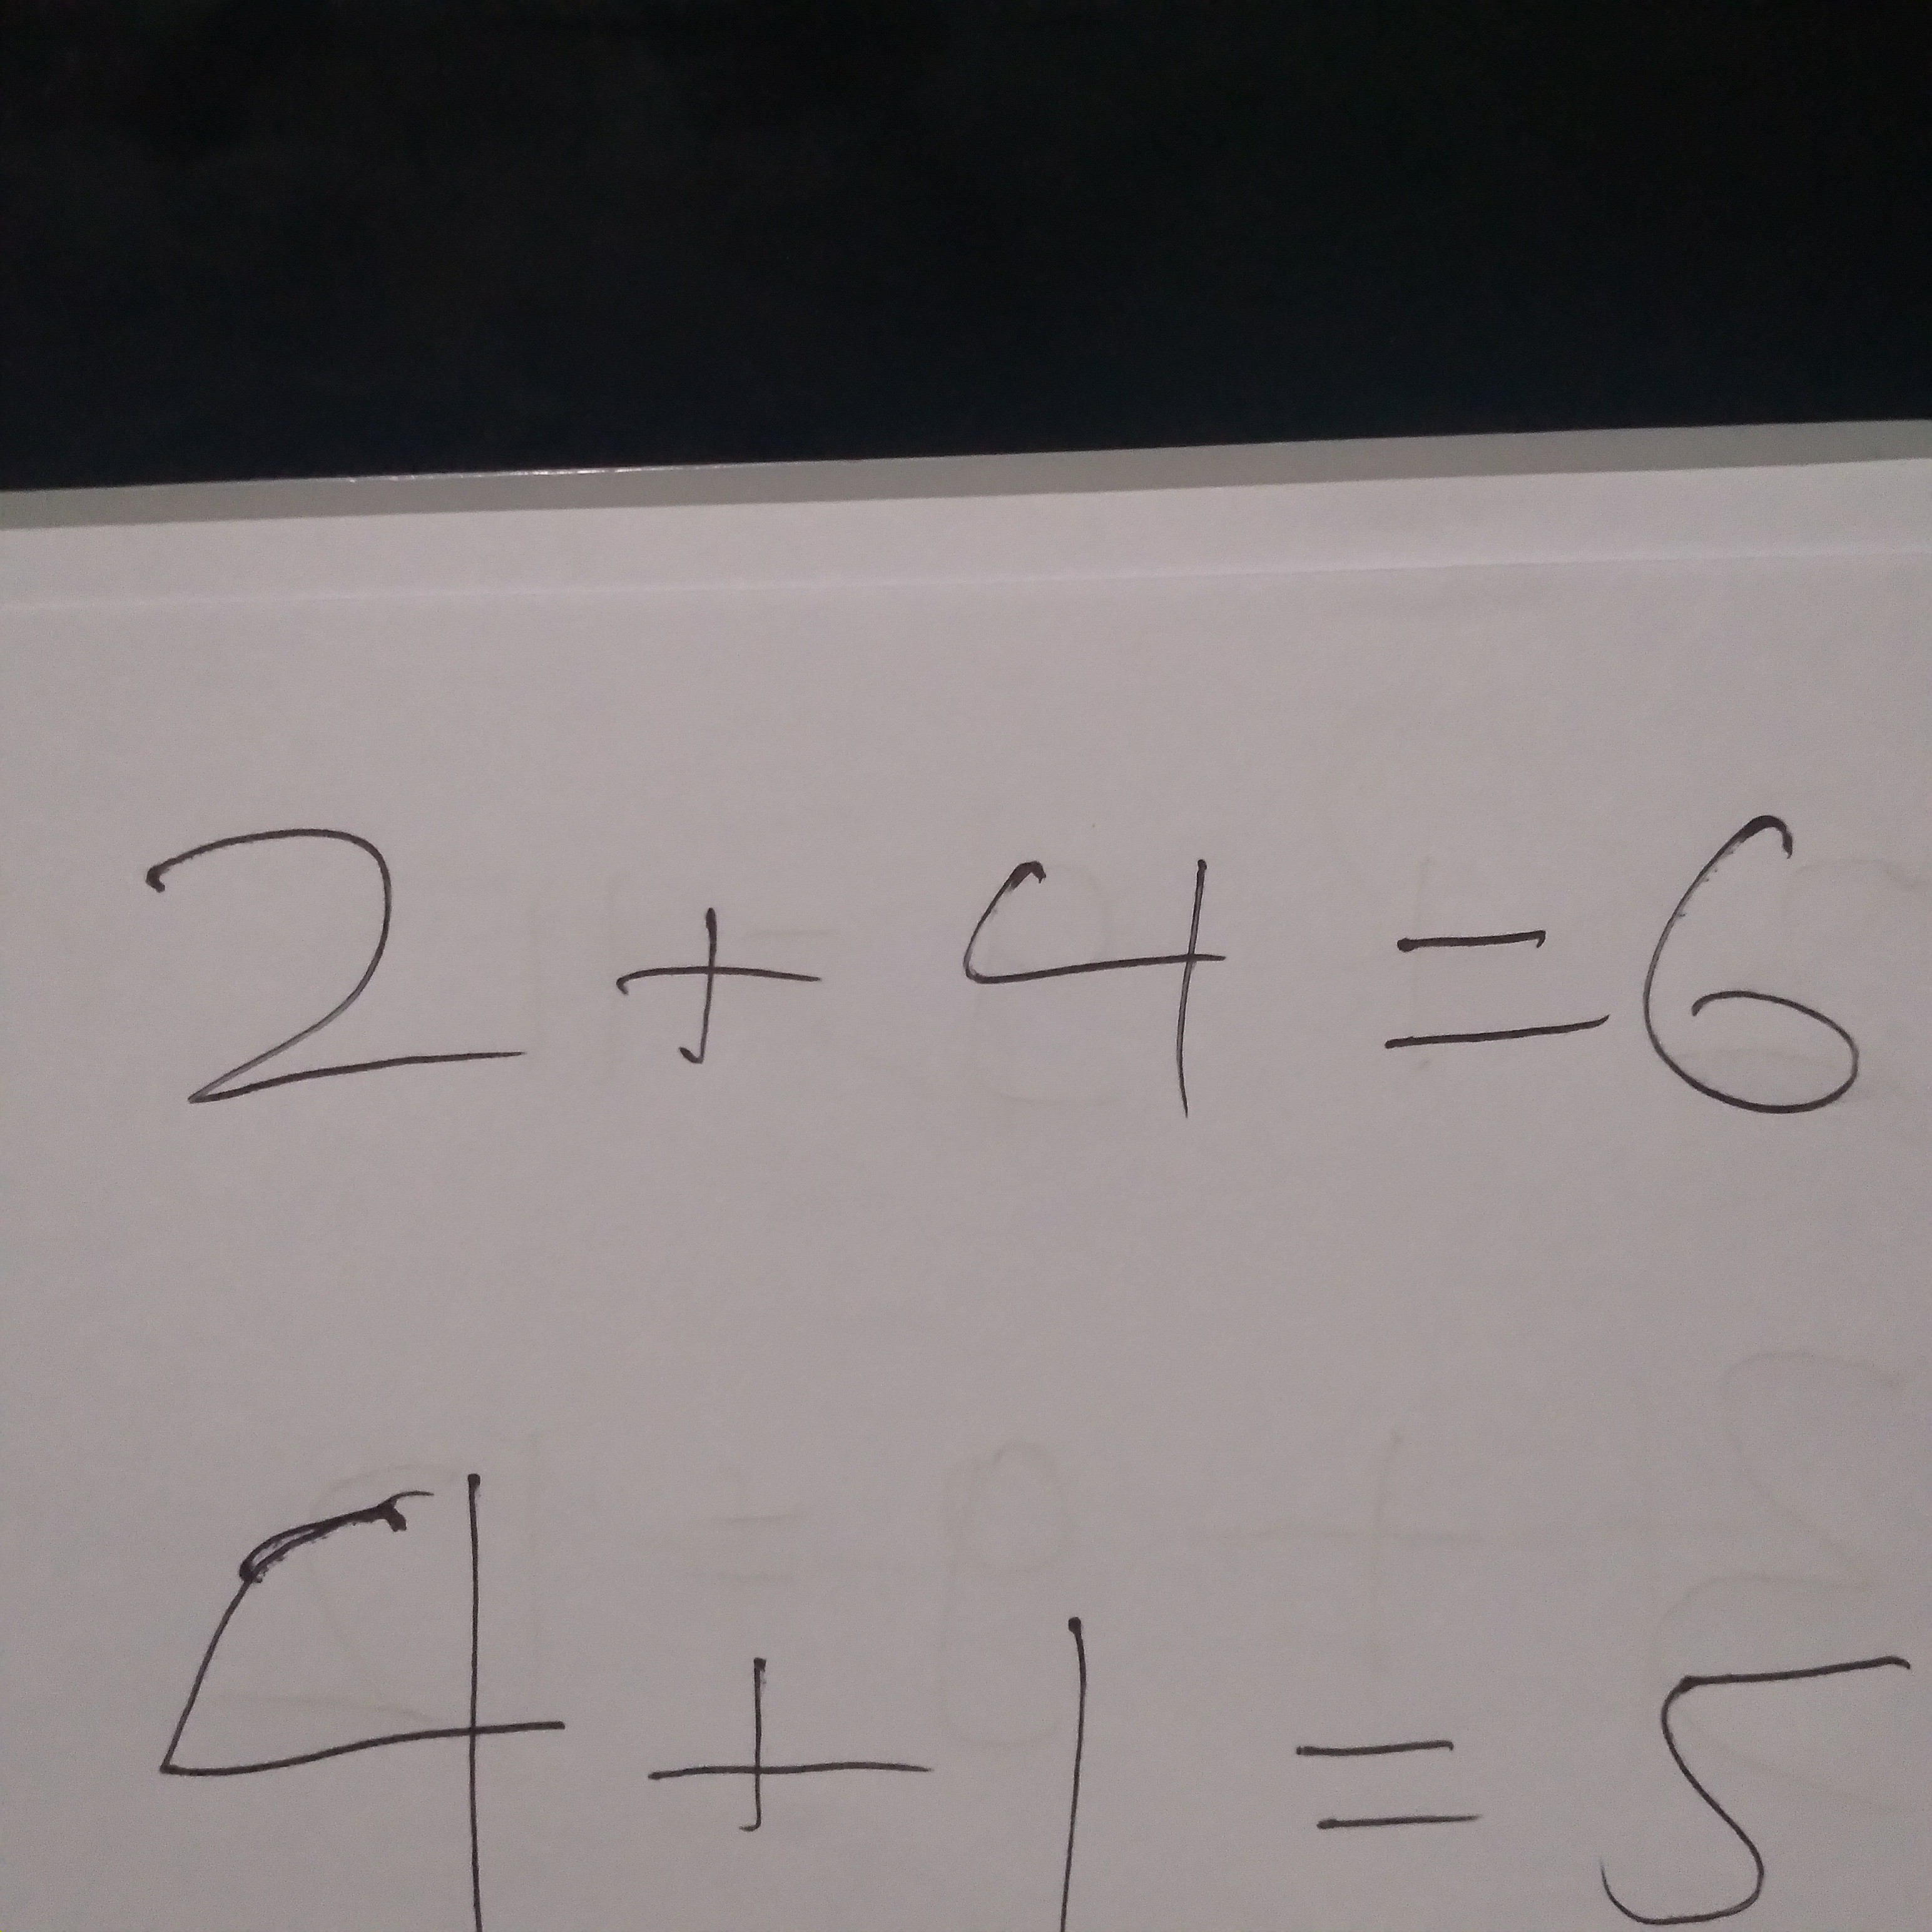 2 + 4 = 6
4 + 1 = 5